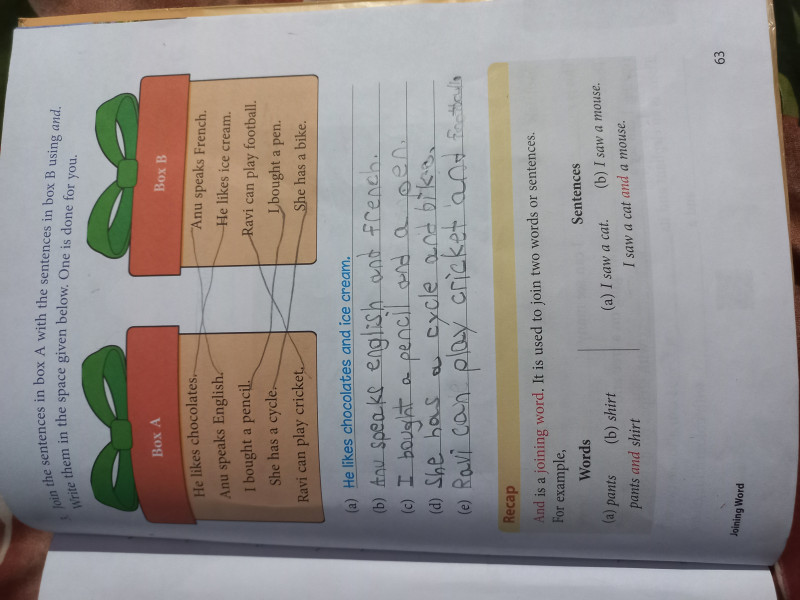 Join the sentences in box A with the sentences in box B using and.
Write them in the space given below. One is done for you.
Box A
He likes chocolates.
Anu speaks English.
I bought a pencil.
She has a cycle.
Ravi can play cricket.
Box B
Anu speaks French.
He likes ice cream.
Ravi can play football.
I bought a pen.
She has a bike.
(a) He likes chocolates and ice cream.
(b) Anu speaks english and french.
(c) I bought a pencil and a pen.
(d) She has a cycle and bike.
(e) Ravi can play cricket and football.
Recap
And is a joining word. It is used to join two words or sentences.
For example,
Words
(a) pants (b) shirt
pants and shirt
Sentences
(a) I saw a cat. (b) I saw a mouse.
I saw a cat and a mouse.
Joining Word
63